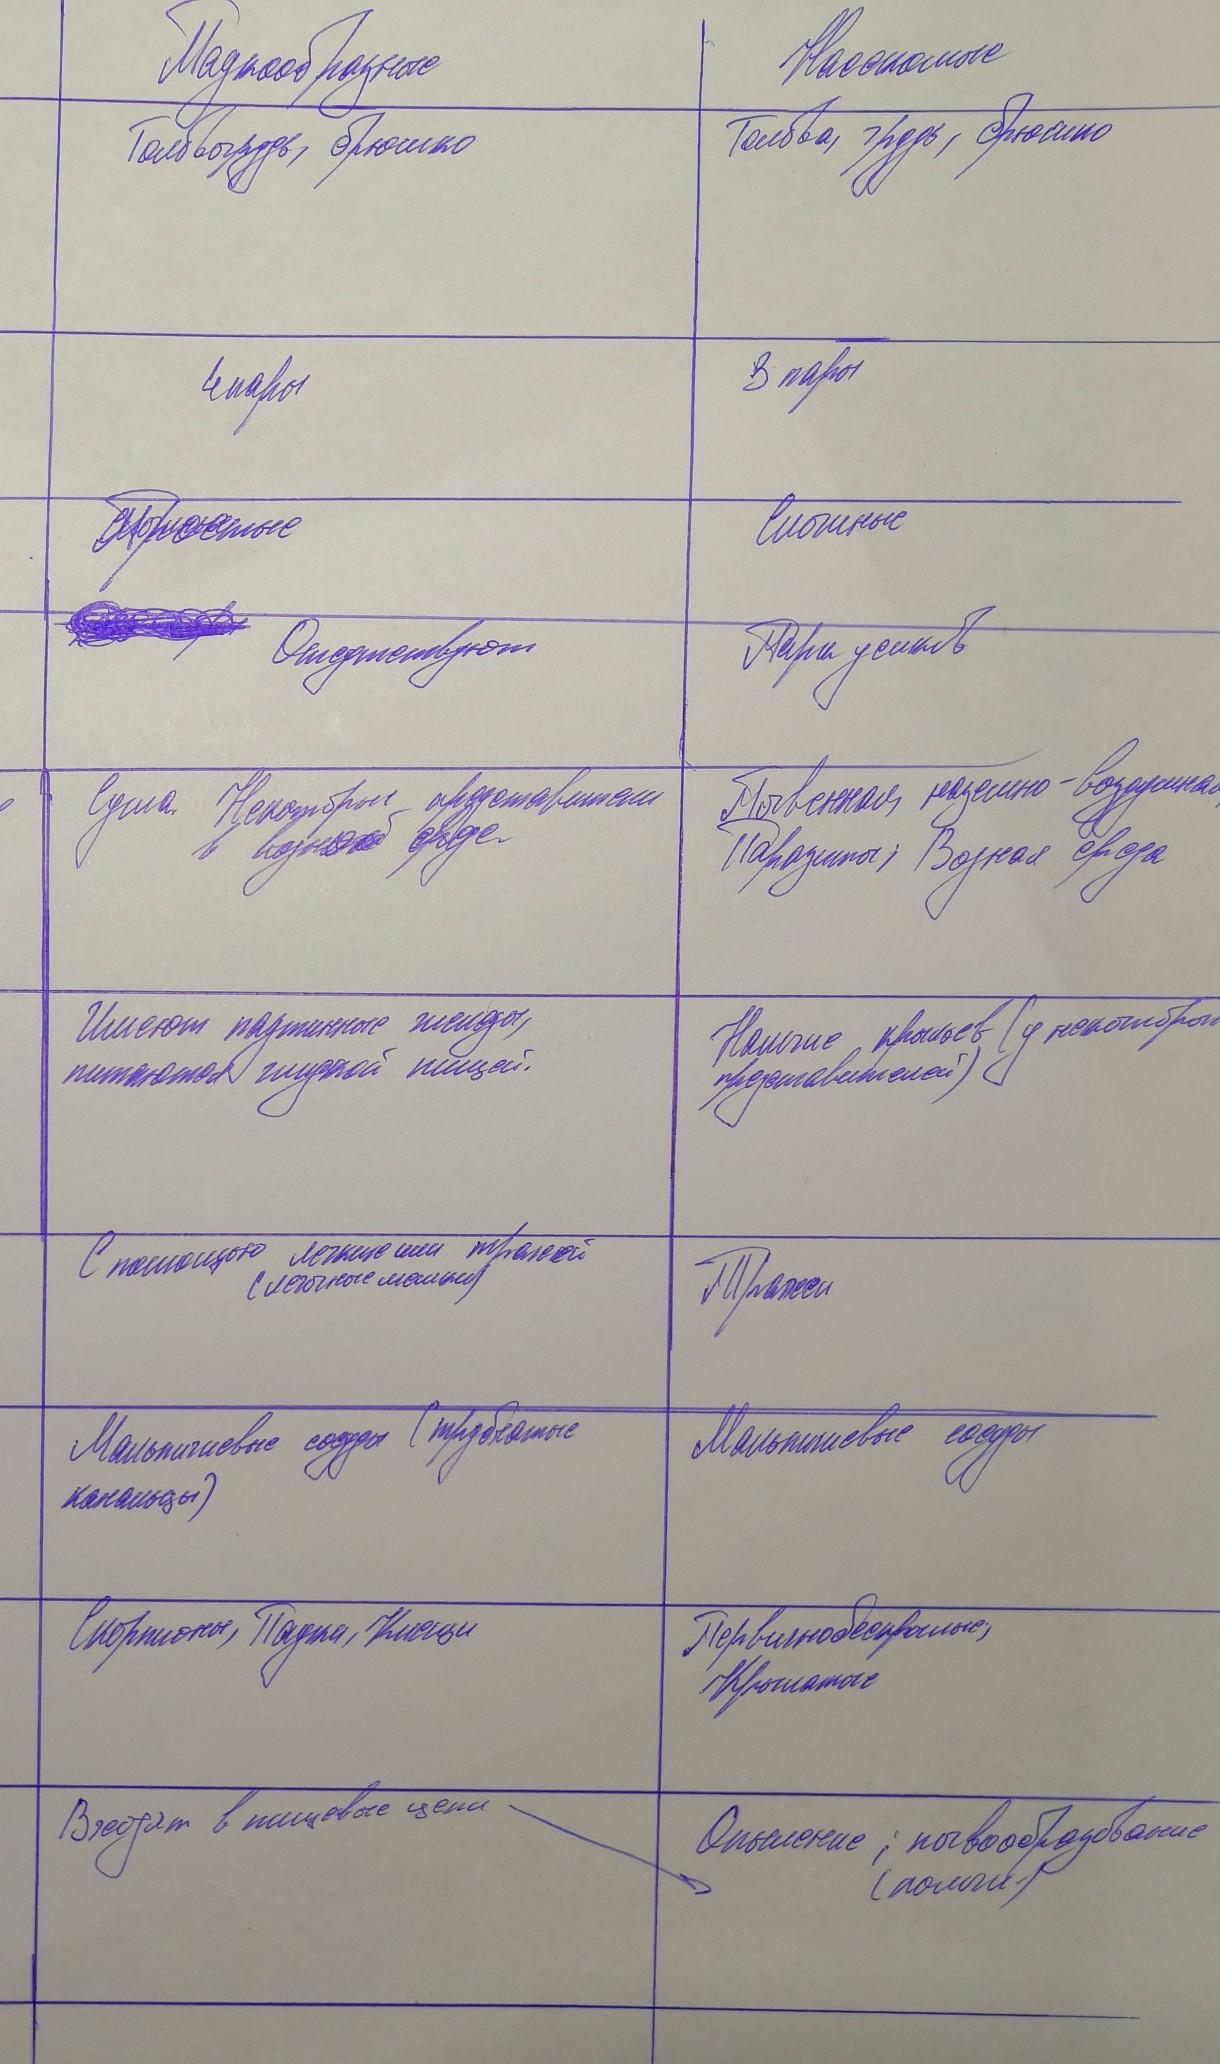 Паукообразные
Насекомые
Головогрудь, брюшко
Голова, грудь, брюшко
4 пары
3 пары
Простые
Сложные
Отсутствуют
Пара усиков
Суша. Некоторые представители
в водной среде.
Почвенная, наземно-воздушная,
Паразиты; Водная среда
Имеют паутинные железы,
питаются жидкой пищей.
Наличие крыльев (у некоторых
представителей)
С помощью легких или трахей
(легочные мешки)
Трахеи
Мальпигиевые сосуды (трубчатые
канальцы)
Мальпигиевые сосуды
Скорпионы, Пауки, Клещи
Первичнобескрылые,
Крылатые
Входят в пищевые цепи
Опыление; почвообразование